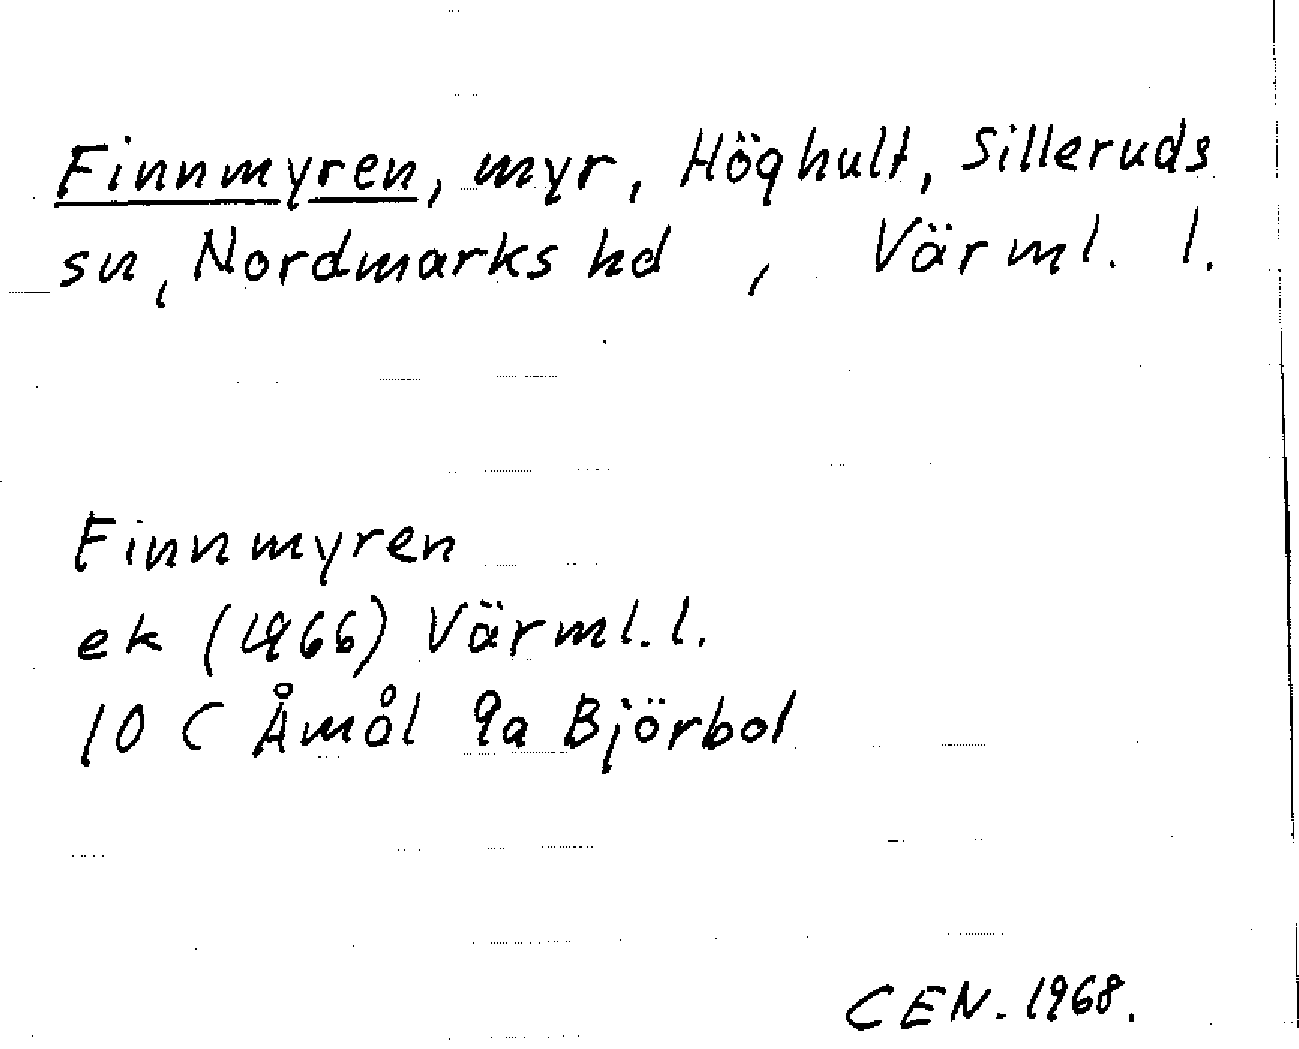 Finnmyren, myr, Höghult, Silleruds
sn, Nordmarks hd , Värml. l.
Finnmyren
ek (1966) Värml. l.
10 C Åmål 9a Björbol
CEN. 1968.